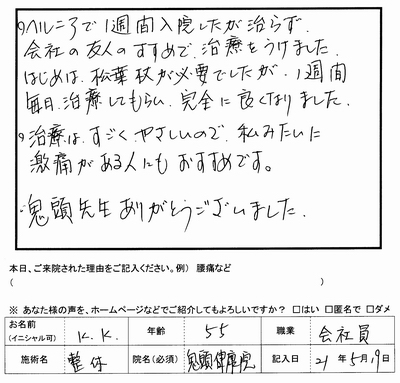 ヘルニアで1週間入院したが治らず、
会社の友人のすすめで、治療をうけました。
はじめは、松葉杖が必要でしたが、1週間
毎日、治療してもらい、完全に良くなりました。
治療は、すごくやさしいので、私みたいに
激痛がある人にもおすすめです。
鬼頭先生ありがとうございました。
本日、ご来院された理由をご記入ください。例) 腰痛など
( )
※ あなた様の声を、ホームページなどでご紹介してもよろしいですか? □はい □匿名で □ダメ
お名前 (イニシャル可) K.K. 年齢 55 職業 会社員
施術名 整体 院名(必須) 鬼頭健康院 記入日 21年5月19日